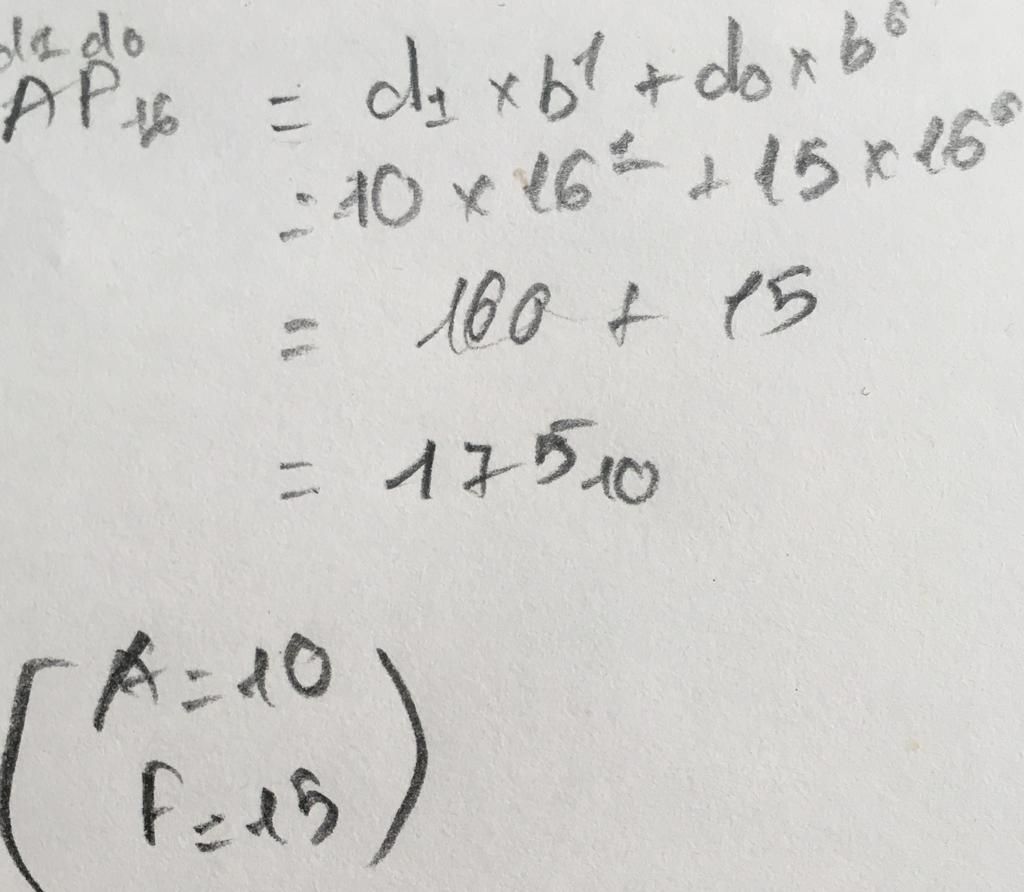 d₁ d₀
AF₁₆ = d₁ × b¹ + d₀ × b⁰
= 10 × 16¹ + 15 × 16⁰
= 160 + 15
= 175₁₀
A = 10
F = 15